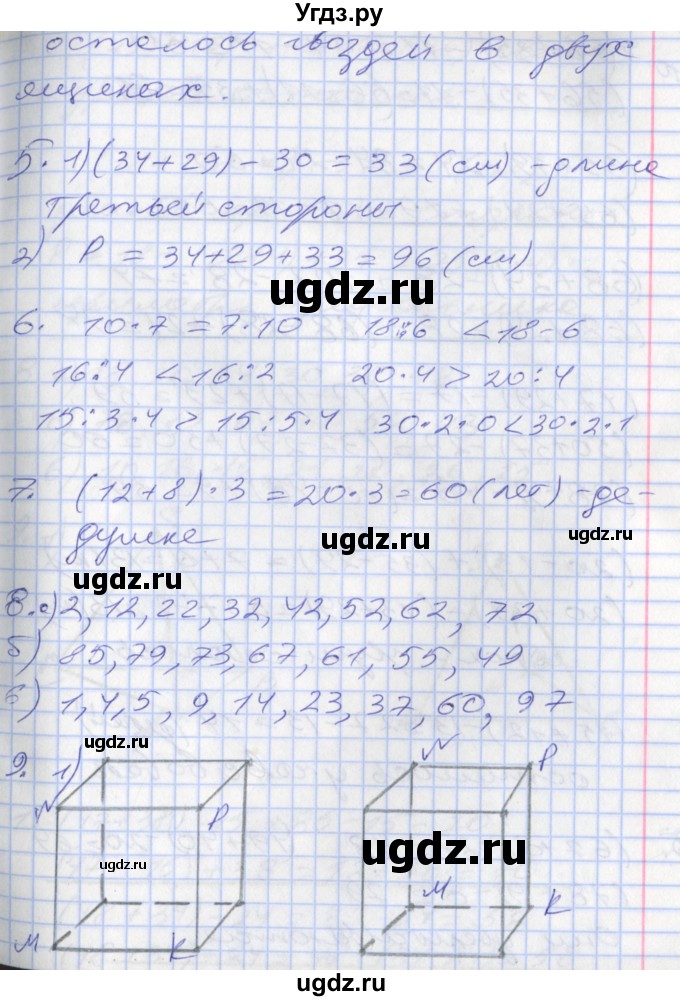 Угдз.ру
осталось гвоздей в двух
ящиках.
5. 1) (34+29) - 30 = 33 (см) - длина
третьей стороны.
2) P = 34+29+33 = 96 (см)
ugdz.ru
6. 10·7 = 7·10 18:6 < 18-6
16:4 < 16:2 20·4 > 20:4
15:3·4 > 15:5·4 30·2·0 < 30·2·1
7. (12+8)·3 = 20·3 = 60 (лет) - де-
душке
ugdz.ru ugdz.ru
ugdz.ru
8. а) 2, 12, 22, 32, 42, 52, 62, 72
б) 85, 79, 73, 67, 61, 55, 49
в) 1, 4, 5, 9, 14, 23, 37, 60, 97
ugdz.ru
9. 1) N P
N P
ugdz.ru
ugdz.ru
M K
M K
ugdz.ru ugdz.ru